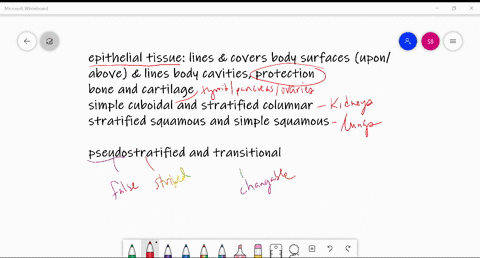 Microsoft Whiteboard
SB
epithelial tissue: lines & covers body surfaces (upon/
above) & lines body cavities, protection
bone and cartilage thyroid/pancreas/ovaries
simple cuboidal and stratified columnar - Kidneys
stratified squamous and simple squamous - lungs
pseudostratified and transitional
false striped changable